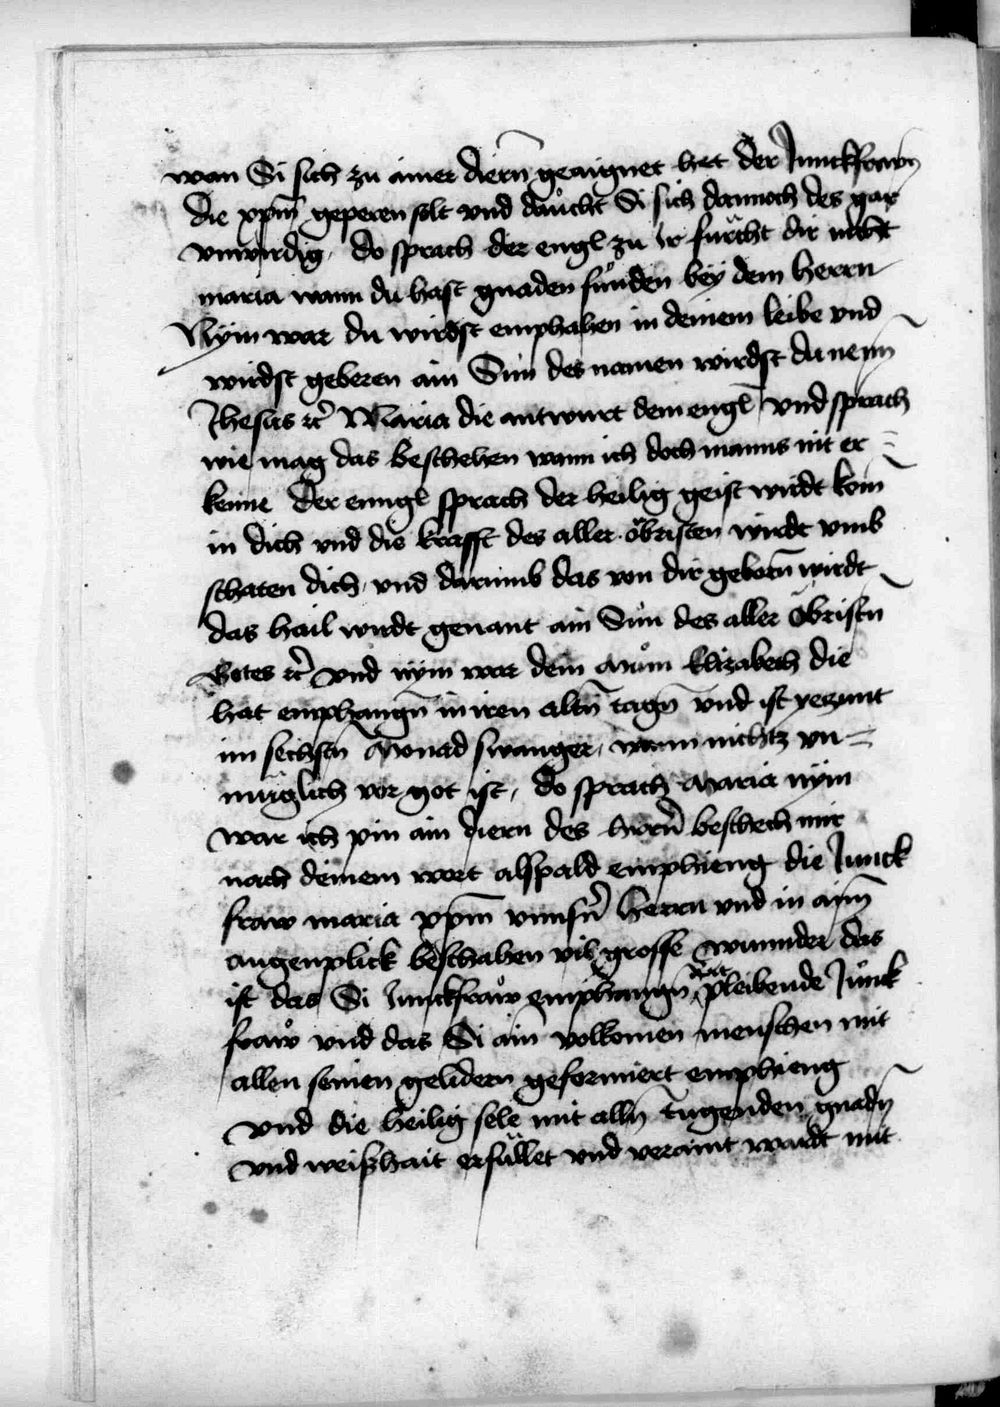 wan Si sich zu ainer diern̄ geaignet het der Junckfrawn
die xp̄m geperen solt vnd daucht Si sich dannoch des gar
vnwirdig, do sprach der engl zu ir fürcht dir nicht
maria wann du hast gnaden funden bey dem herrn
Nym war du wirdst emphahen in deinem leibe vnd
wirdst geberen ain Sun des namen wirdst du nen̄n
Jhesus ꝛc̄ Maria die antwurt dem engl vnd sprach
wie mag das beschehen wann ich doch manns nit er=
kenne Der enngl sprach der heilig geist wirdt kom̄
in dich vnd die krafft des aller öbristen wirdt vmb
schaten dich, vnd darumb das von dir geborn̄ wirdt
das hail wirdt genant ain Sun des aller öbristn̄
Gotes ꝛc̄ vnd nym war dein Mům Elizabeth die
hat emphangn̄ in iren altn̄ tagn̄ vnd ist yezunt
im sechstn̄ Monad swanger, wann nichtz vn=
müglich vor got ist, do sprach Maria nym
war ich pin ain diern des herrn̄ beschech mir
nach deinem wort alspald emphieng die Junck
fraw maria xp̄m vnnsn̄ herrn vnd in aim̄
augenplick beschahen vil grosse wunnder das
ist das Si Junckfraw emphangn̄ hat pleibende Junck
fraw vnd das Si ain̄ volkomen menschen mit
allen seinen gelidern geformiert emphieng
vnd die heilig sele mit alln̄ tugenden gnadn̄
vnd weißhait erfüllet vnd veraint wardt mit